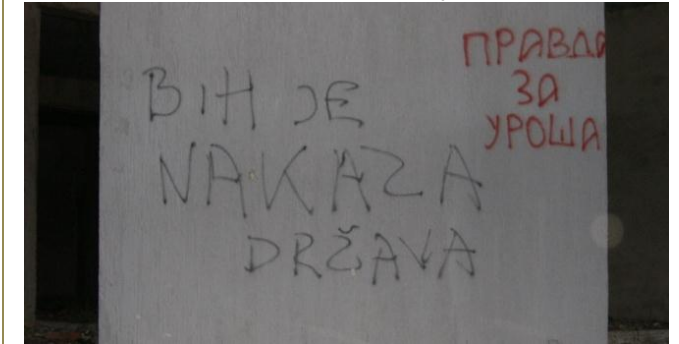 BIH JE
NAKAZA
DRŽAVA
ПРАВДА
ЗА
УРОША